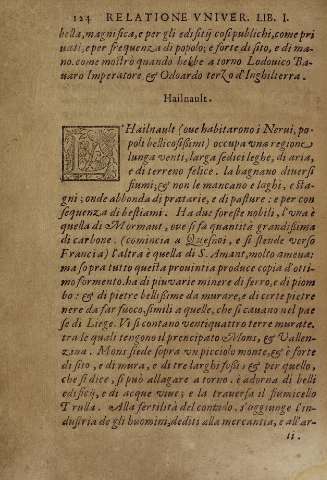 124 RELATIONE VNIVER. LIB. I.
bella, magnifica, e per gli edifitij cosi publichi, come pri
uati, e per frequenza di popolo; e forte di sito, e di ma-
no. come mostrò quando hebbe a torno Lodouico Ba-
uaro Imperatore & Odoardo terzo d'Inghilterra.
Hailnault.
L'Hailnault (oue habitarono i Nerui, po-
poli bellicosissimi) occupa vna regione
lunga venti, larga sedici leghe, di aria,
e di terreno felice. la bagnano diuersi
fiumi; & non le mancano e laghi, e sta-
gni; onde abbonda di pratarie, e di pasture: e per con
sequenza di bestiami. Ha due foreste nobili, l'vna è
quella di Mormaut, oue si fa quantità grandissima
di carbone. (comincia a Quesnoi, e si stende verso
Francia) l'altra è quella di S. Amant, molto amena:
ma sopra tutto questa prouintia produce copia d'otti-
mo formento. ha di piu varie minere di ferro, e di piom
bo: & di pietre bellissime da murare, e di certe pietre
nere da far fuoco, simili a quelle, che si cauano nel pae
se di Liege. Vi si contano ventiquattro terre murate.
tra le quali tengono il prencipato Mons, & Vallen-
zina. Mons siede sopra vn picciolo monte, & è forte
di sito, e di mura, e di tre larghi fossi: & per quello,
che si dice, si può allagare a torno. è adorna di belli
edificij, e di acque viue; e la trauersa il fiumicello
Trulla. Alla fertilità del contado, s'aggiunge l'in-
dustria de gli huomini, dediti alla mercantia, e all'ar-
ti.